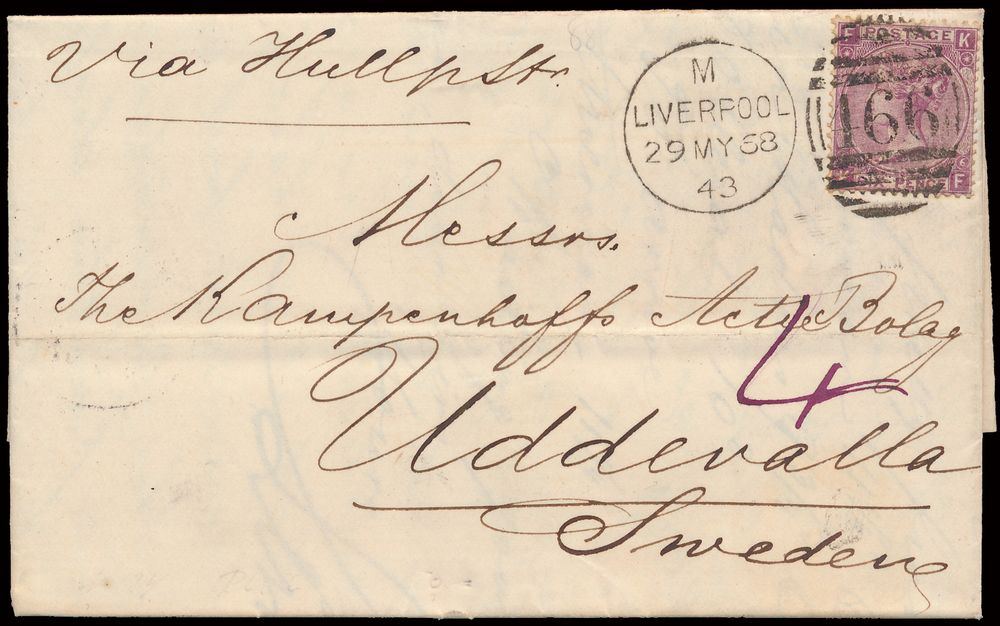 Via Hull p Str.
M
LIVERPOOL
29 MY 68
43
F POSTAGE K
466
SIX PENCE F
Messrs.
The Kampenhoffs Actie Bolag
4
Uddevalla
Sweden